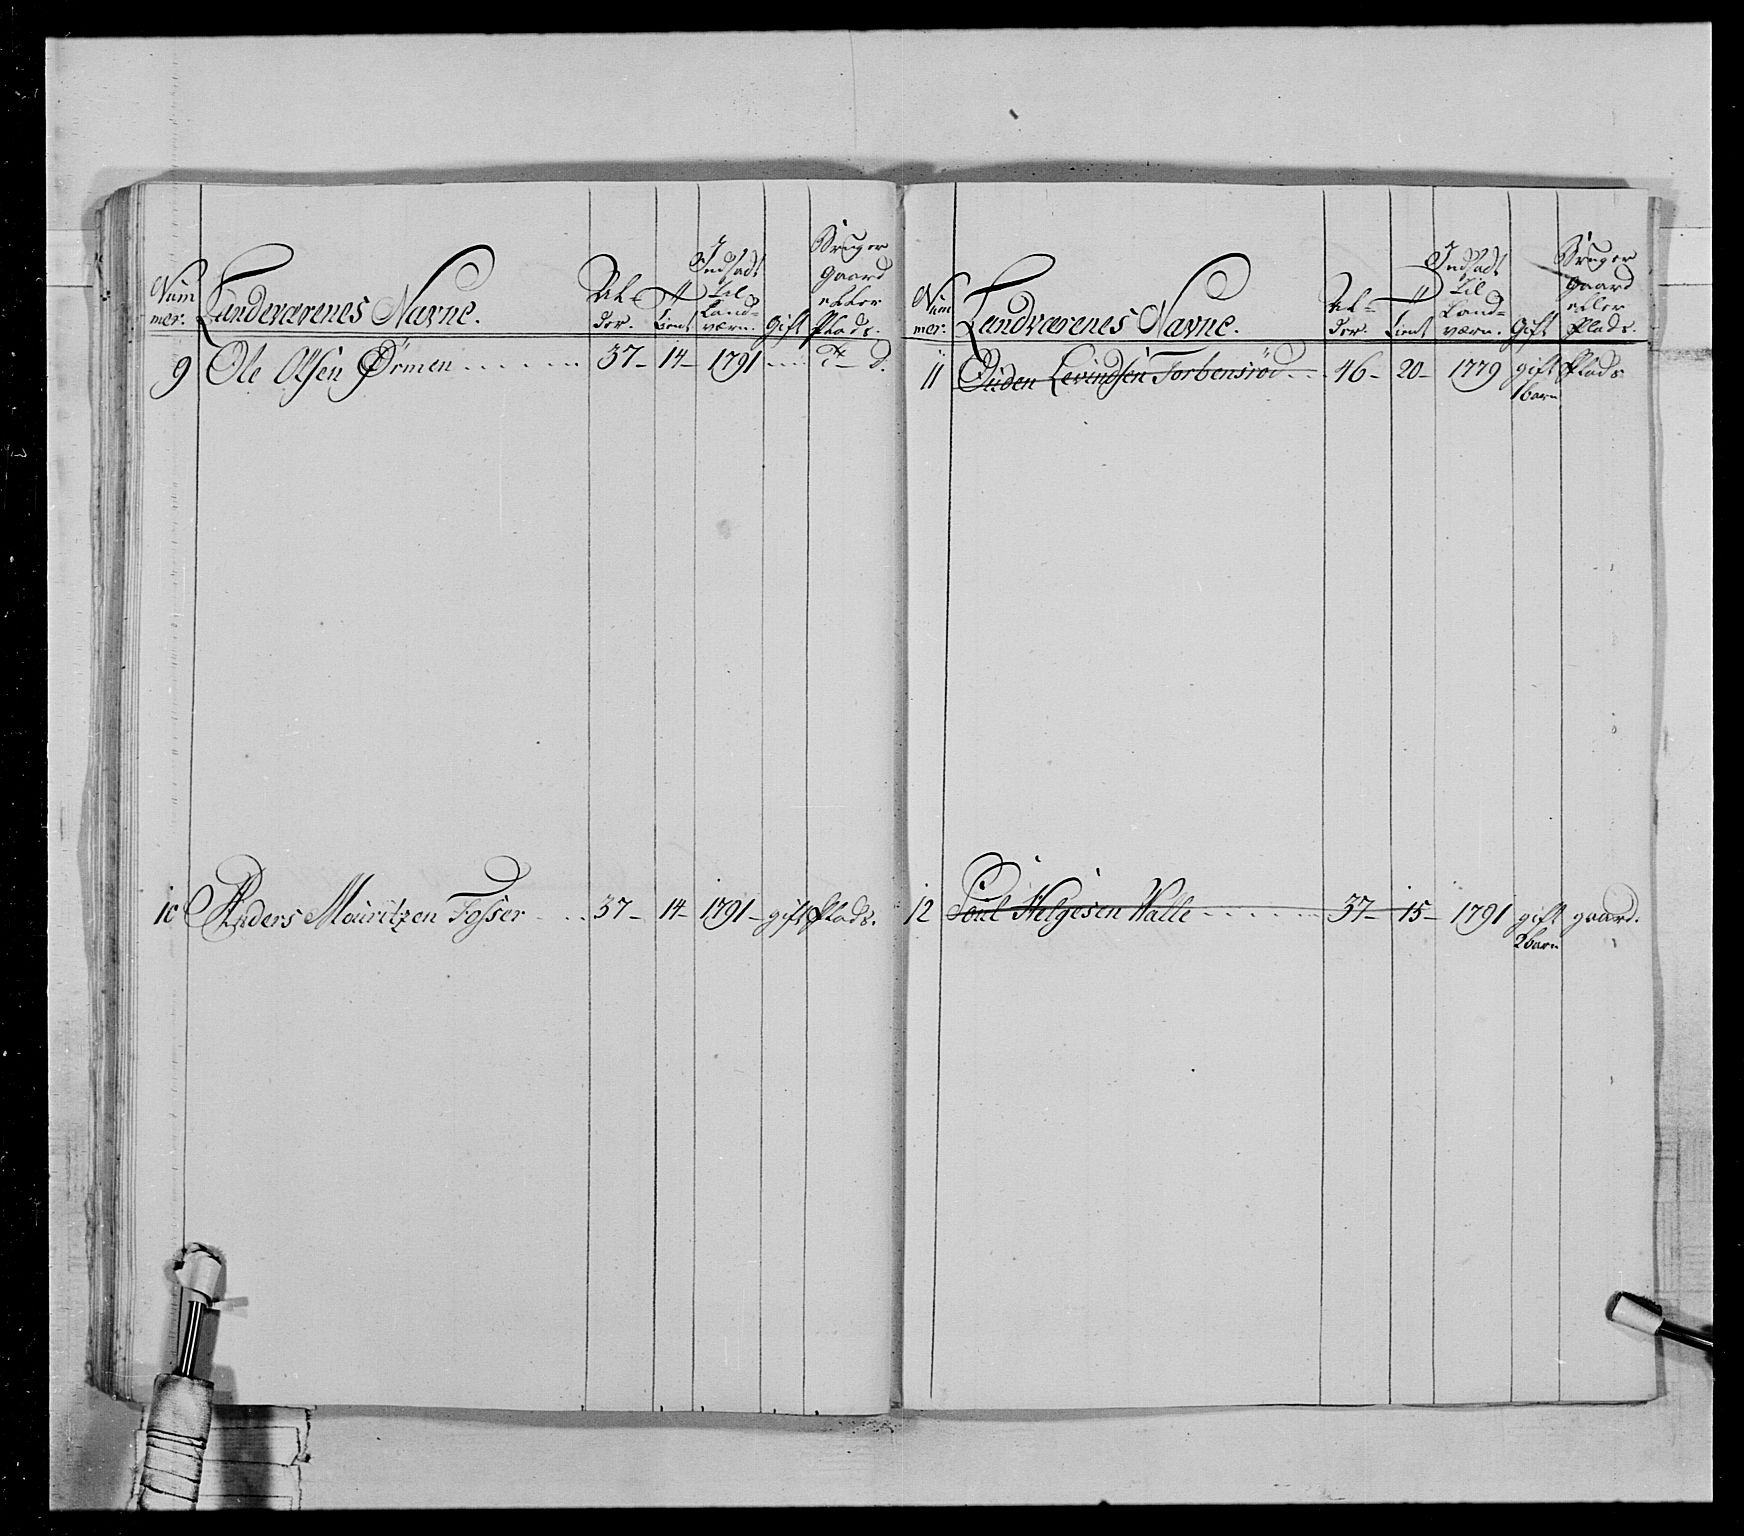 Num
mer. Landeværenes Navne. Al-
der. Tient Indsadt
til
Land-
værn. Gift Bruger
gaard
eller
Plads.
9 Ole Olsen Ørmen 37 14 1791
10 Anders Mauritzen Fosser 37 14 1791 gift Plads.
Num
mer. Landværenes Navne. Al-
der. Tient Indsadt
til
Land-
værn. Gift Bruger
gaard
eller
Plads.
11 Levindsen Torbensröd 46 20 1779 gift Plads
1 barn
12 Poul Helgesen Walle 37 15 1791 gift gaard.
2 barn